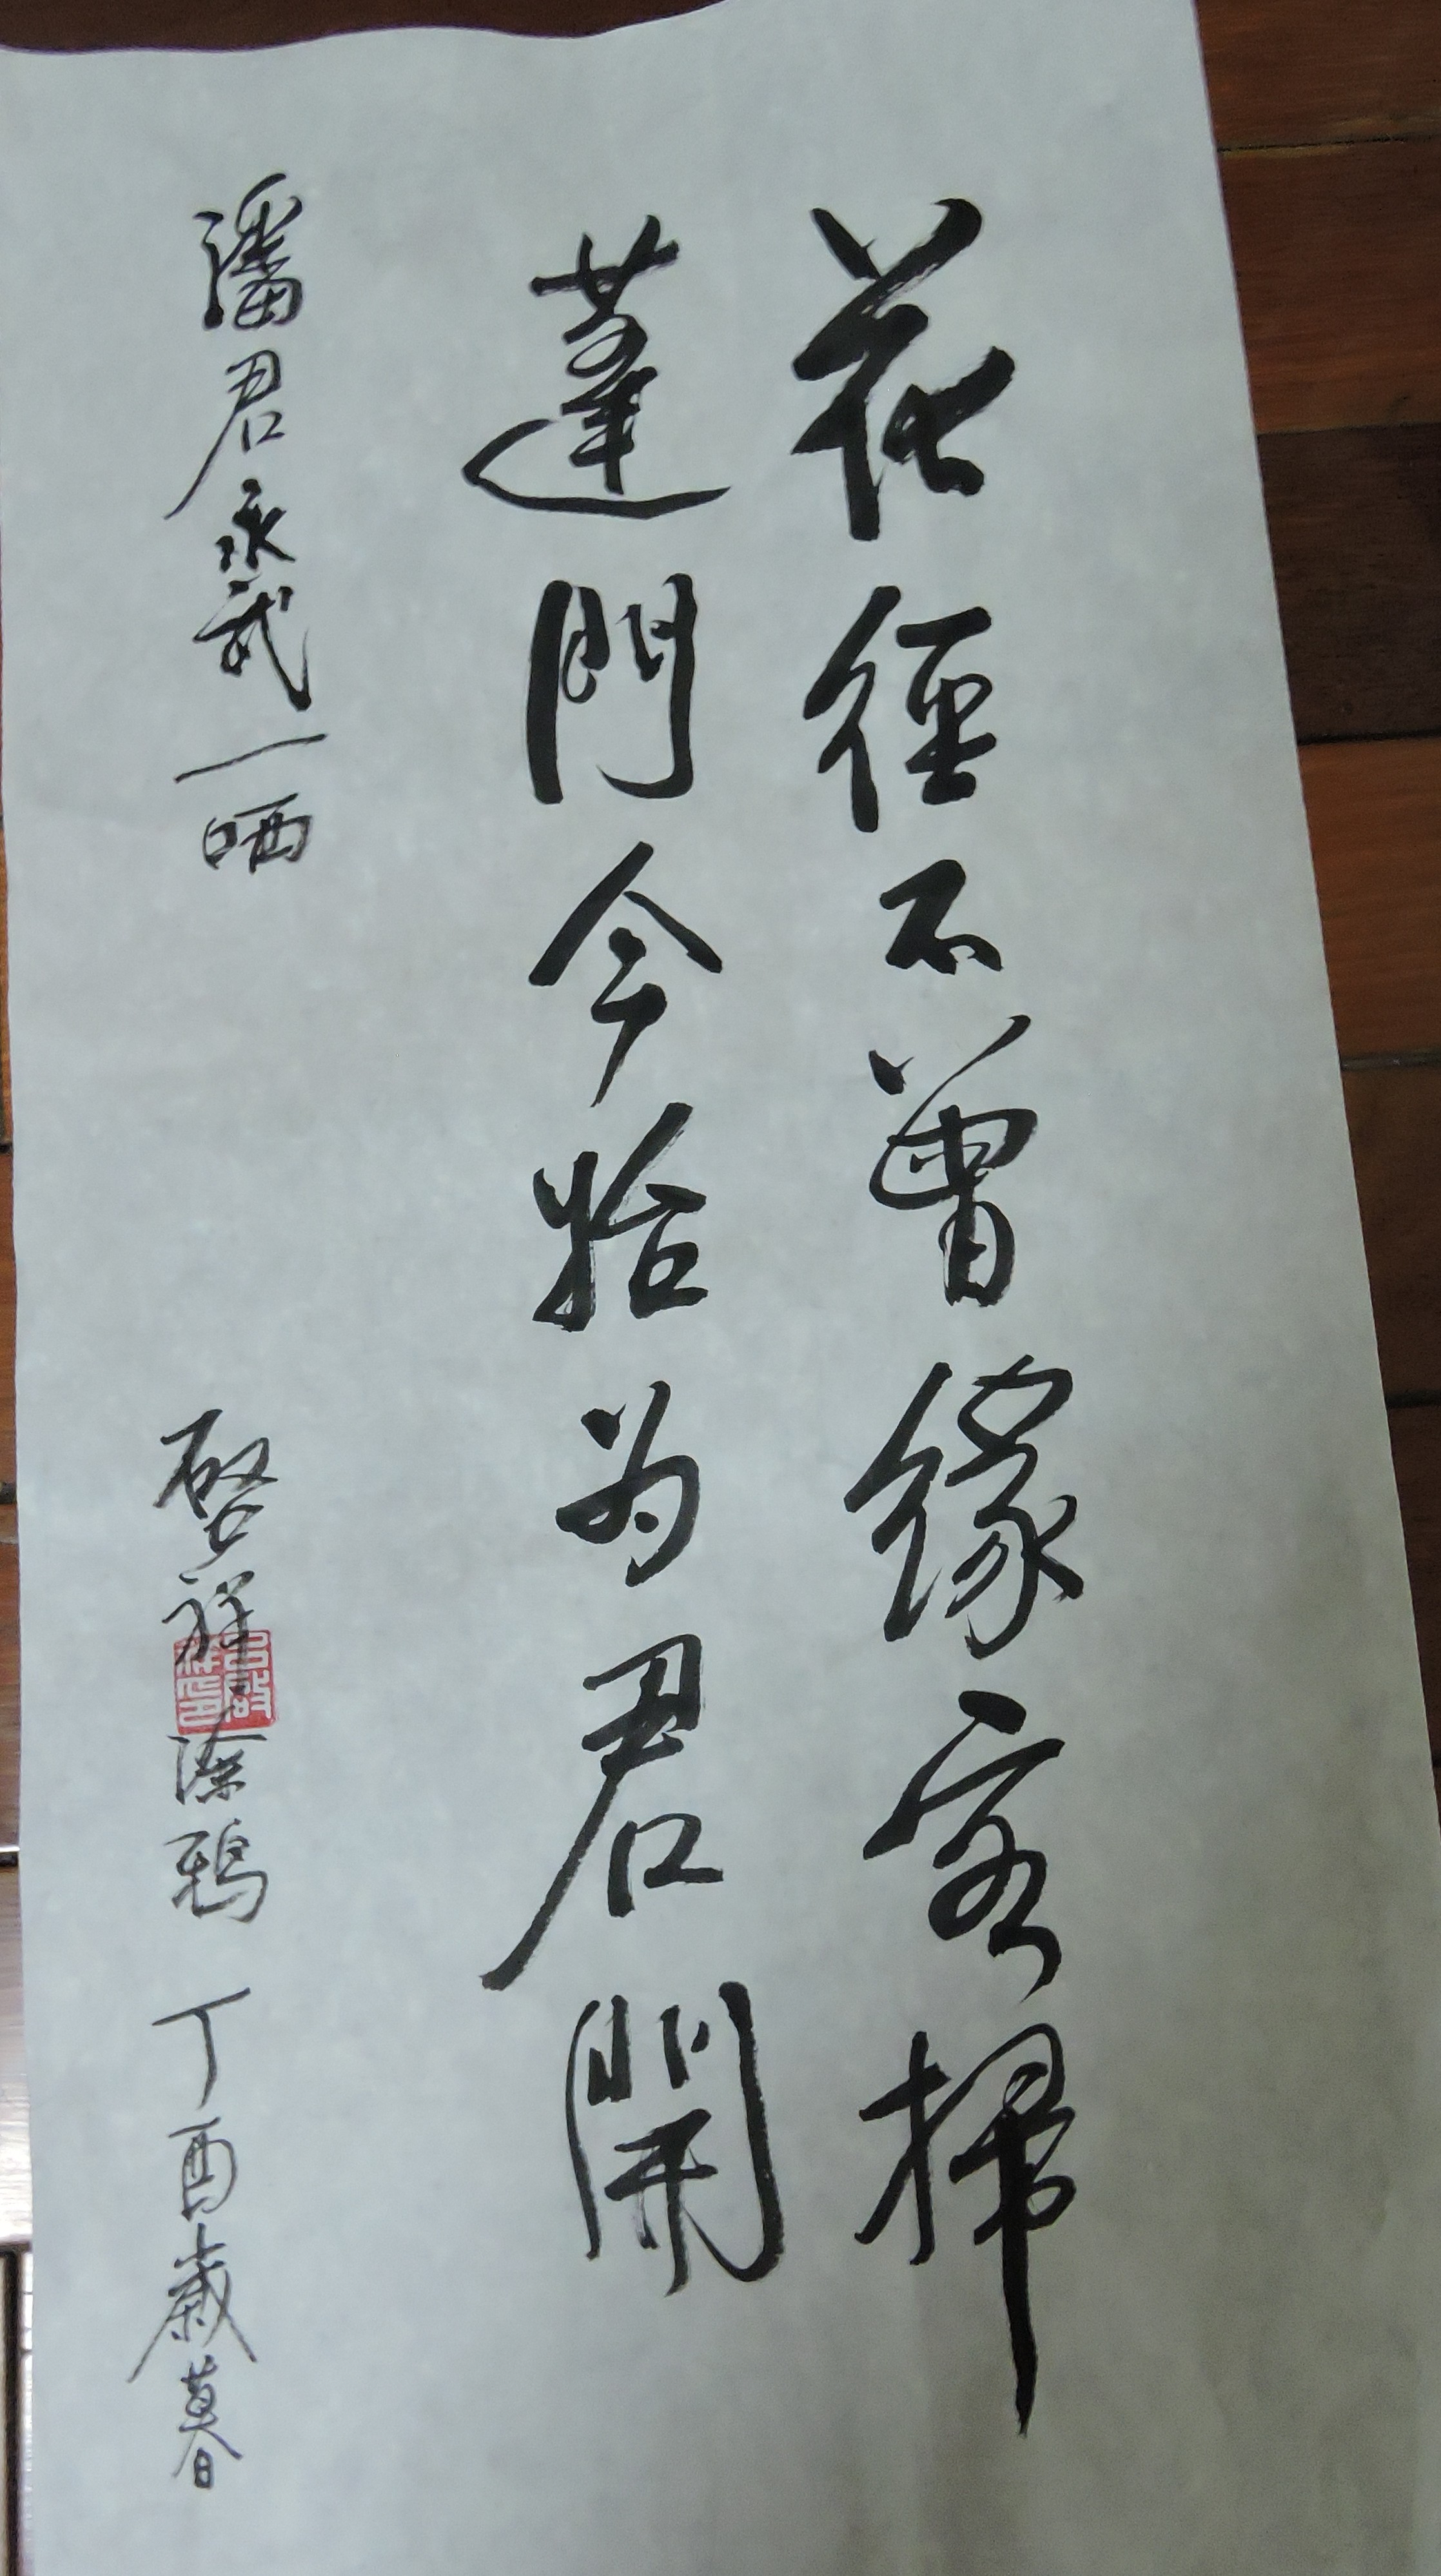 花徑不曾緣客掃
蓬門今始为君開
潘君永武一哂 啓祥涂鴉 丁酉歲暮